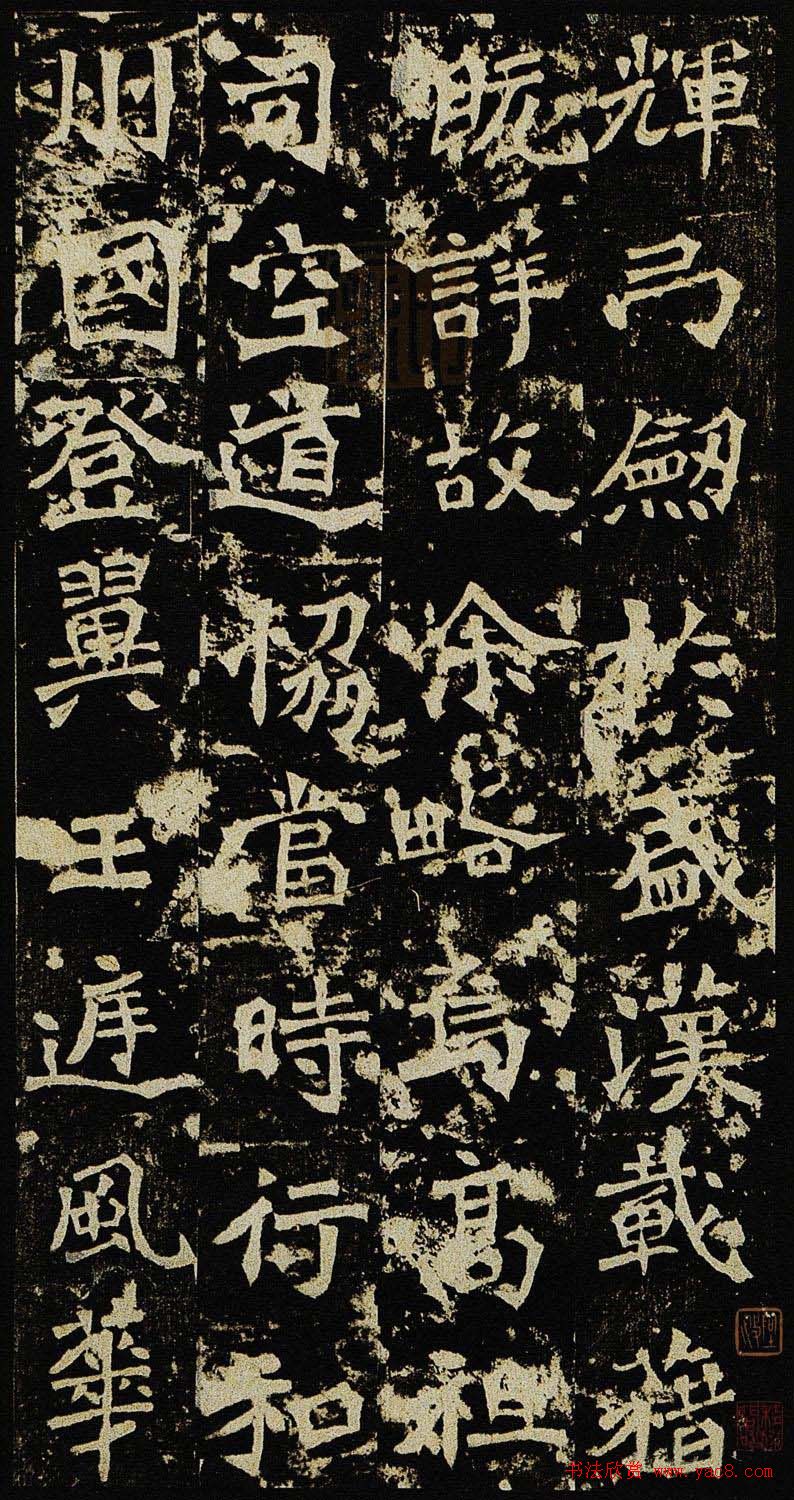 輝弓劒於盛漢載籍
既詳故余略焉高祖
司空道協當時行和
州國登翼王庭風華
书法欣赏 www.yac8.com